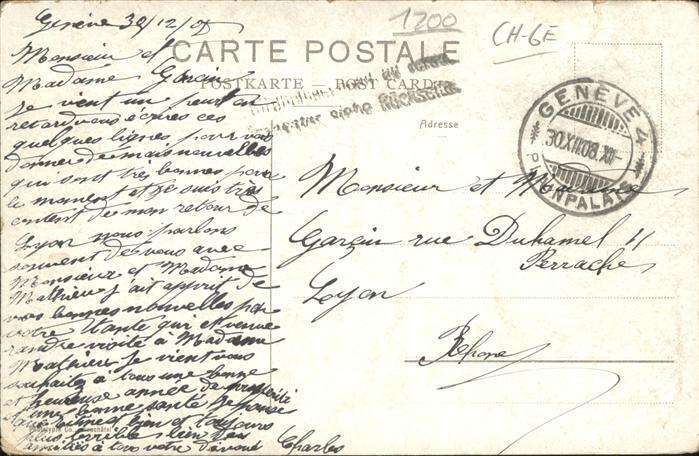 1200
CH-6E
Genève 30/12/08
CARTE POSTALE
POSTKARTE — POST CARD
Adresse
GENÈVE 4
30.XII.08.XII-
PLAINPALAIS
Monsieur et
Madame Garçin
Je vient un peu
retard vous écrires ces
quelques lignes pour vous
donner de mais nouvelles
qui sont très bonnes pour
le moment et je suis très
content de mon retour de
Lyon nous parlons
souvent de vous avec
Monsieur et Madame
Mathieu j ait apprit de
vos bonnes nouvelles par
votre tante qui et venue
rendre visite à Madame
Mathieu je vient vous
souhaiter à tous une bonne
et heureuse année de prospérité
et une bonne santé
bien et toujours
plus terrible bien des
amitiés à tous votre dévoué
Charles
Monsieur et Madame
Garçin rue Duhamel 11
Perrache
Lyon
Rhone
Phototypie Co., Neuchâtel